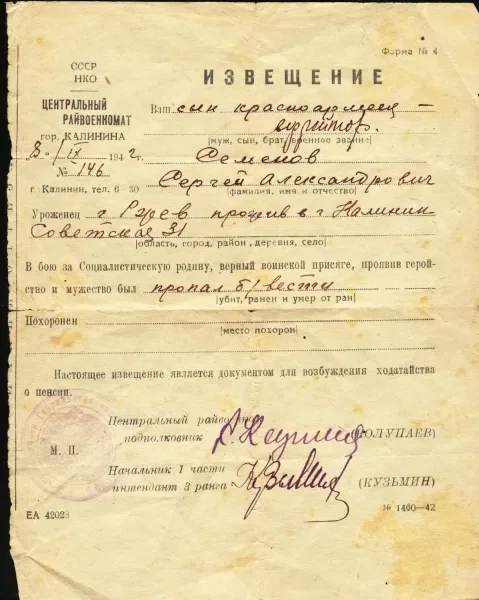 Форма № 4
СССР
НКО
ЦЕНТРАЛЬНЫЙ
РАЙВОЕНКОМАТ
гор. КАЛИНИНА
8/IX 1942 г.
№ 146
г Калинин, тел. 6-30
ИЗВЕЩЕНИЕ
Ваш сын красноармеец —
ефрейтор.
(муж, сын, брат, военное звание)
Семенов
Сергей Александрович
(фамилия, имя и отчество)
Уроженец г Ржев прожив в г Калинин
Советская 31
(область, город, район, деревня, село)
В бою за Социалистическую родину, верный воинской присяге, проявив герой-
ство и мужество был пропал б/вести
(убит, ранен и умер от ран)
Похоронен
(место похорон)
Настоящее извещение является документом для возбуждения ходатайства
о пенсии.
Центральный
подполковник (ХОЛУПАЕВ)
М. П.
Начальник 1 части
интендант 3 ранга (КУЗЬМИН)
ЕА 42023
№ 1460—42